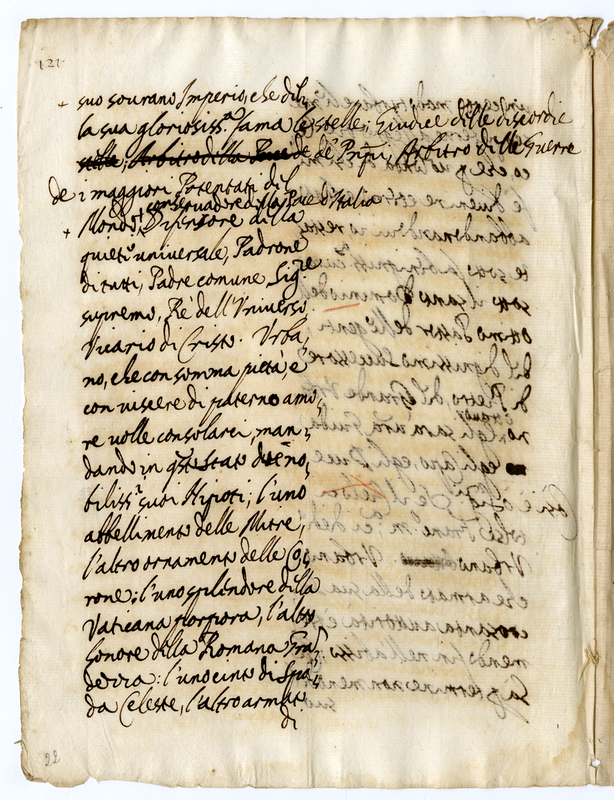 121
suo sourano Imperio, che di li
la sua gloriosiss.ª fama le stelle; Giudice delle discordie
de' Prnpi, Arbitro delle Guerre
de i maggiori Potentati del
conseruadore della Pace d'Italia
Mondo, Difensore della
quiete uniuersale, Padrone
di tutti, Padre comune, Sig.re
supremo, Rè dell'Vniuerso
Vicario di Cristo. Vrba,
no, che con somma pietà, e
con viscere di paterno amo,
re volle consolarci, man,
dando in qsto Stato due no,
biliss.i suoi Nipoti; l'uno
abbellimento delle Mitre,
l'altro ornamento delle Co,
rone; l'uno splendore della
Vaticana porpora, l'altro
honore della Romana Gra,
dezza: l'uno cinto di Spa,
da Celeste, l'altro armato
di
22